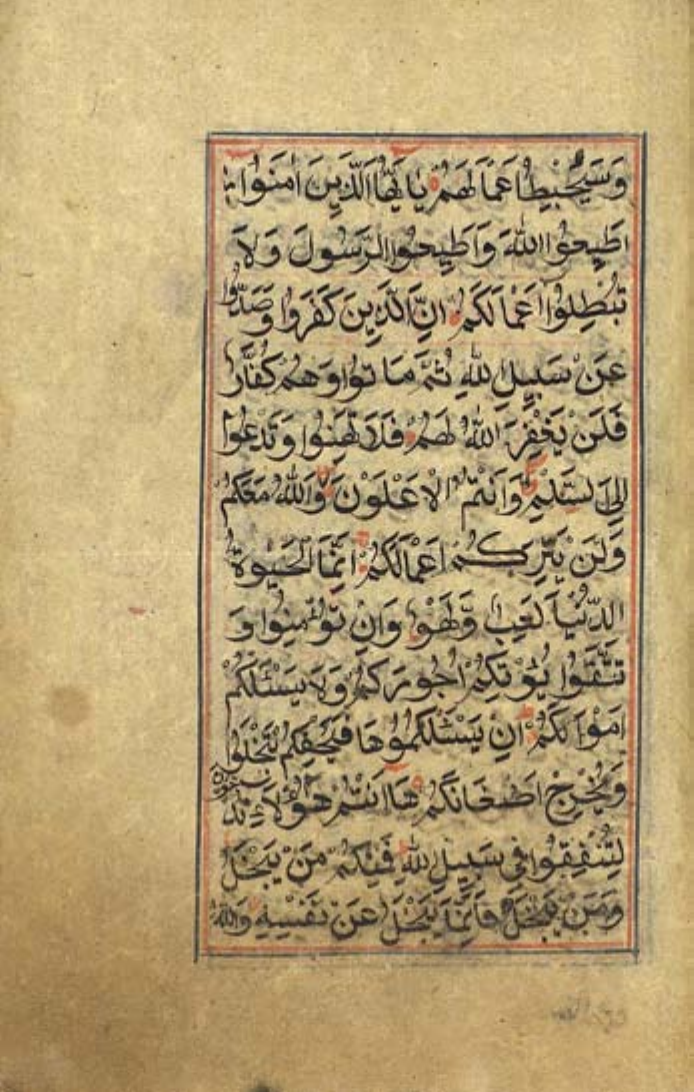 وَسَيُحْبِطُ اَعْمَالَهُمْ يَا اَيُّهَا الَّذِينَ اٰمَنُوا
اَطِيعُوا اللّٰهَ وَاَطِيعُوا الرَّسُولَ وَلَا
تُبْطِلُوا اَعْمَالَكُمْ اِنَّ الَّذِينَ كَفَرُوا وَصَدُّوا
عَنْ سَبِيلِ اللّٰهِ ثُمَّ مَاتُوا وَهُمْ كُفَّارٌ
فَلَنْ يَغْفِرَ اللّٰهُ لَهُمْ فَلَا تَهِنُوا وَتَدْعُوا
اِلَى السَّلْمِ وَاَنْتُمُ الْاَعْلَوْنَ وَاللّٰهُ مَعَكُمْ
وَلَنْ يَتِرَكُمْ اَعْمَالَكُمْ اِنَّمَا الْحَيٰوةُ
الدُّنْيَا لَعِبٌ وَلَهْوٌ وَاِنْ تُؤْمِنُوا وَ
تَتَّقُوا يُؤْتِكُمْ اُجُورَكُمْ وَلَا يَسْئَلْكُمْ
اَمْوَالَكُمْ اِنْ يَسْئَلْكُمُوهَا فَيُحْفِكُمْ تَبْخَلُوا
وَيُخْرِجْ اَضْغَانَكُمْ هَا اَنْتُمْ هٰؤُلَاءِ تُدْعَوْنَ
لِتُنْفِقُوا فِى سَبِيلِ اللّٰهِ فَمِنْكُمْ مَنْ يَبْخَلُ
وَمَنْ يَبْخَلْ فَاِنَّمَا يَبْخَلُ عَنْ نَفْسِهِ وَاللّٰهُ